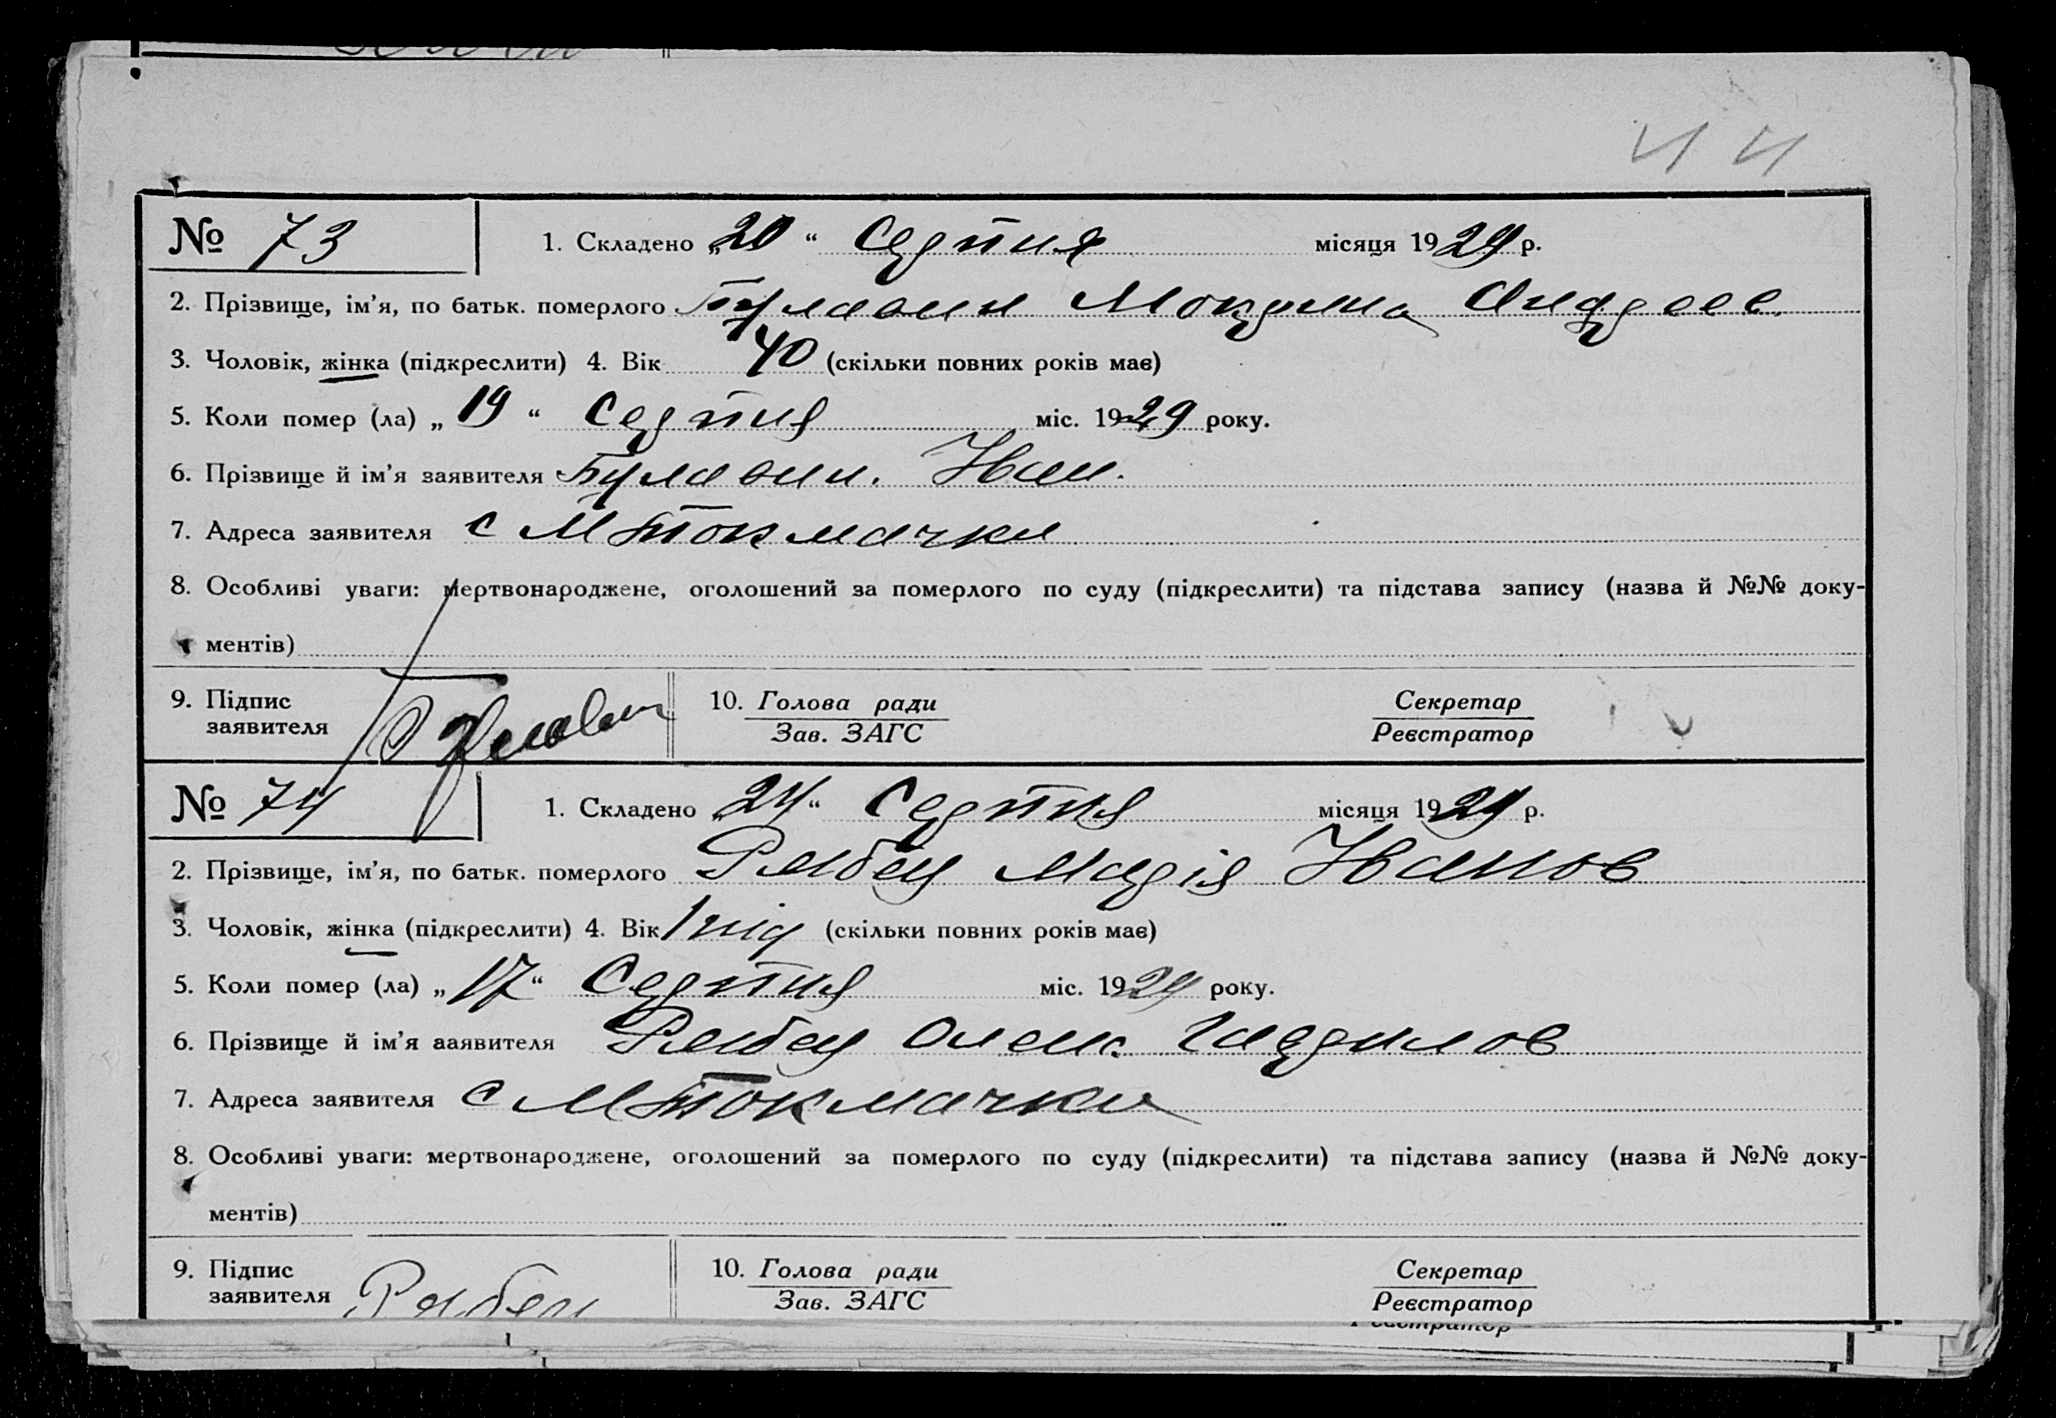 44
№ 73 1. Складено „20“ Серпня місяця 1929 р.
2. Прізвище, ім'я, по батьк. померлого Булавин Мокрина Андреев.
3. Чоловік, жінка (підкреслити) 4. Вік 40 (скільки повних років має)
5. Коли помер (ла) „19“ Серпня міс. 1929 року.
6. Прізвище й ім'я заявителя Булавин. Иван.
7. Адреса заявителя с М Токмачка
8. Особливі уваги: мертвонароджене, оголошений за померлого по суду (підкреслити) та підстава запису (назва й №№ доку-
ментів)
9. Підпис 10. Голова ради Секретар
заявителя Зав. ЗАГС Реєстратор
№ 74 1. Складено „24“ Серпня місяця 1929 р.
2. Прізвище, ім'я, по батьк. померлого Рябец Марія Иванов
3. Чоловік, жінка (підкреслити) 4. Вік 1 рік (скільки повних років має)
5. Коли помер (ла) „17“ Серпня міс. 1929 року.
6. Прізвище й ім'я заявителя Рябец Олекс. Гаврилов
7. Адреса заявителя с М Токмачка
8. Особливі уваги: мертвонароджене, оголошений за померлого по суду (підкреслити) та підстава запису (назва й №№ доку-
ментів)
9. Підпис 10. Голова ради Секретар
заявителя Рябец Зав. ЗАГС Реєстратор
Реєстратор